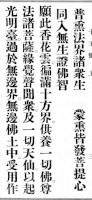 普熏法界諸衆生　　蒙熏皆發菩提心
同入無生證佛智
願此香花雲徧滿十方界供養一切佛尊
法諸菩薩緣覺聲聞衆及一切天仙以起
光明臺過於無邊界無邊佛土中受用作